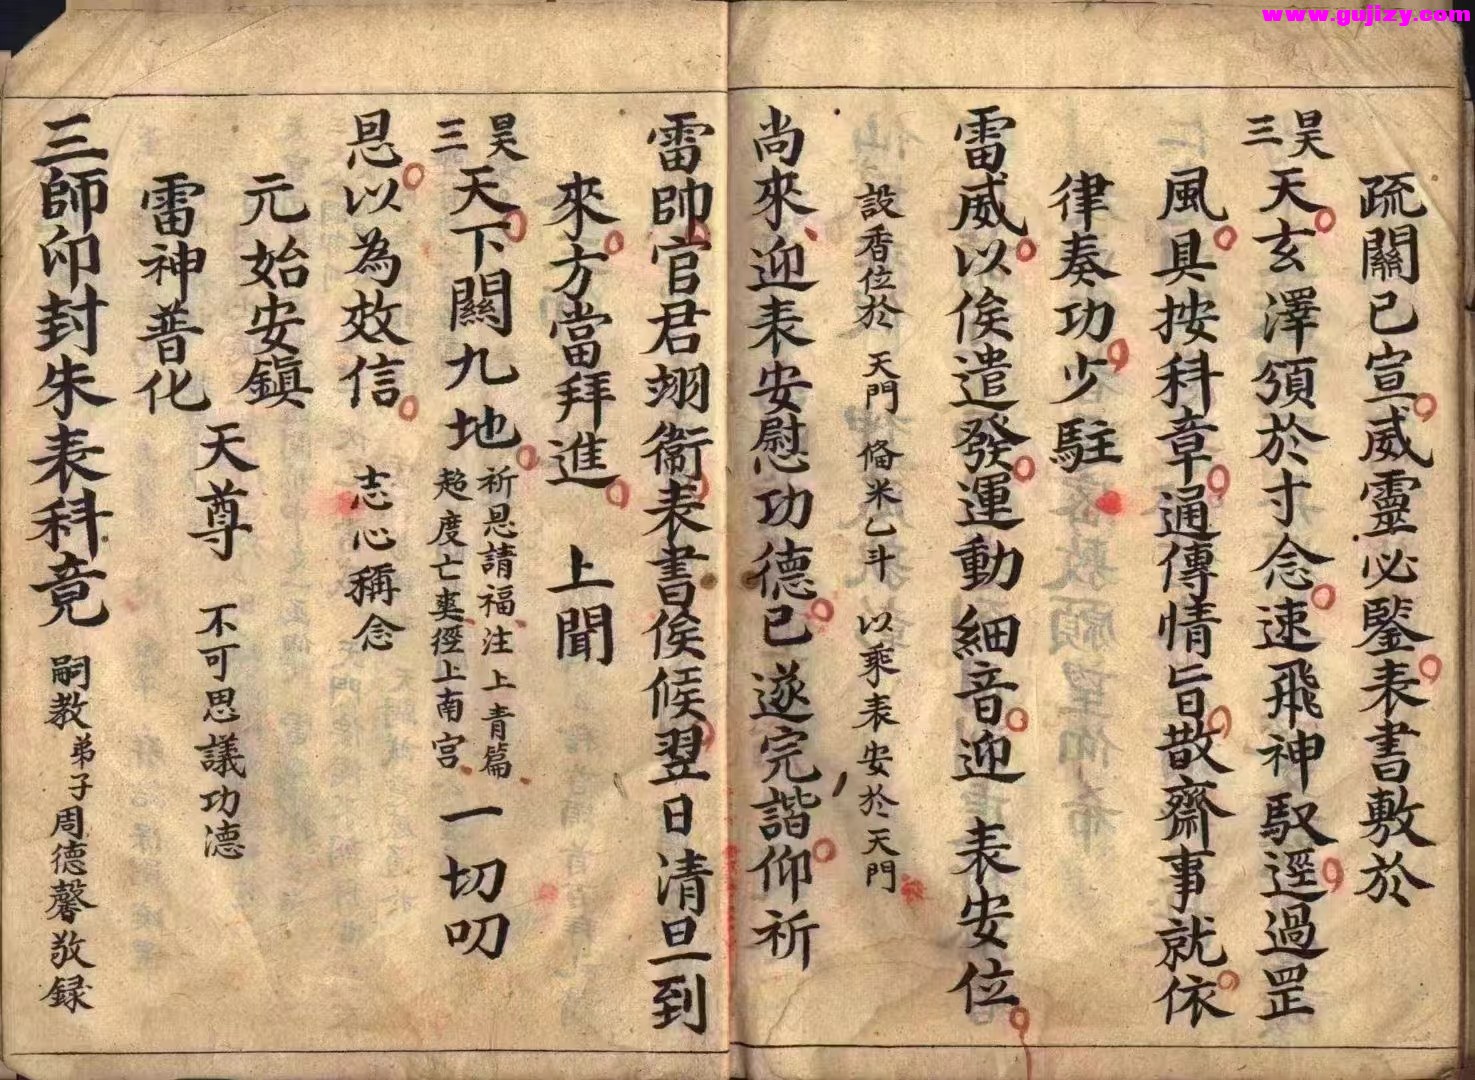 www.gujizy.com
疏關已宣威靈必鑒表書敷於
昊
三
天玄澤須於寸念速飛神馭逕過罡
風具按科章通傳情旨散齋事就依
律奏功少駐
雷威以俟遣發運動細音迎 表安位
設香位於 天門 俻米乙斗 以乘表安於天門
尚來迎表安慰功德已遂完諧仰祈
雷帥官君翊衞表書俟候翌日清旦到
來方當拜進 上聞
昊
三
天下關九地
祈恩請福注上青篇
超度亡奭徑上南宮
一切叨
恩以為效信 志心稱念
元始安鎮
雷神普化
天尊 不可思議功德
三師印封朱表科竟 嗣教弟子周德馨敬録